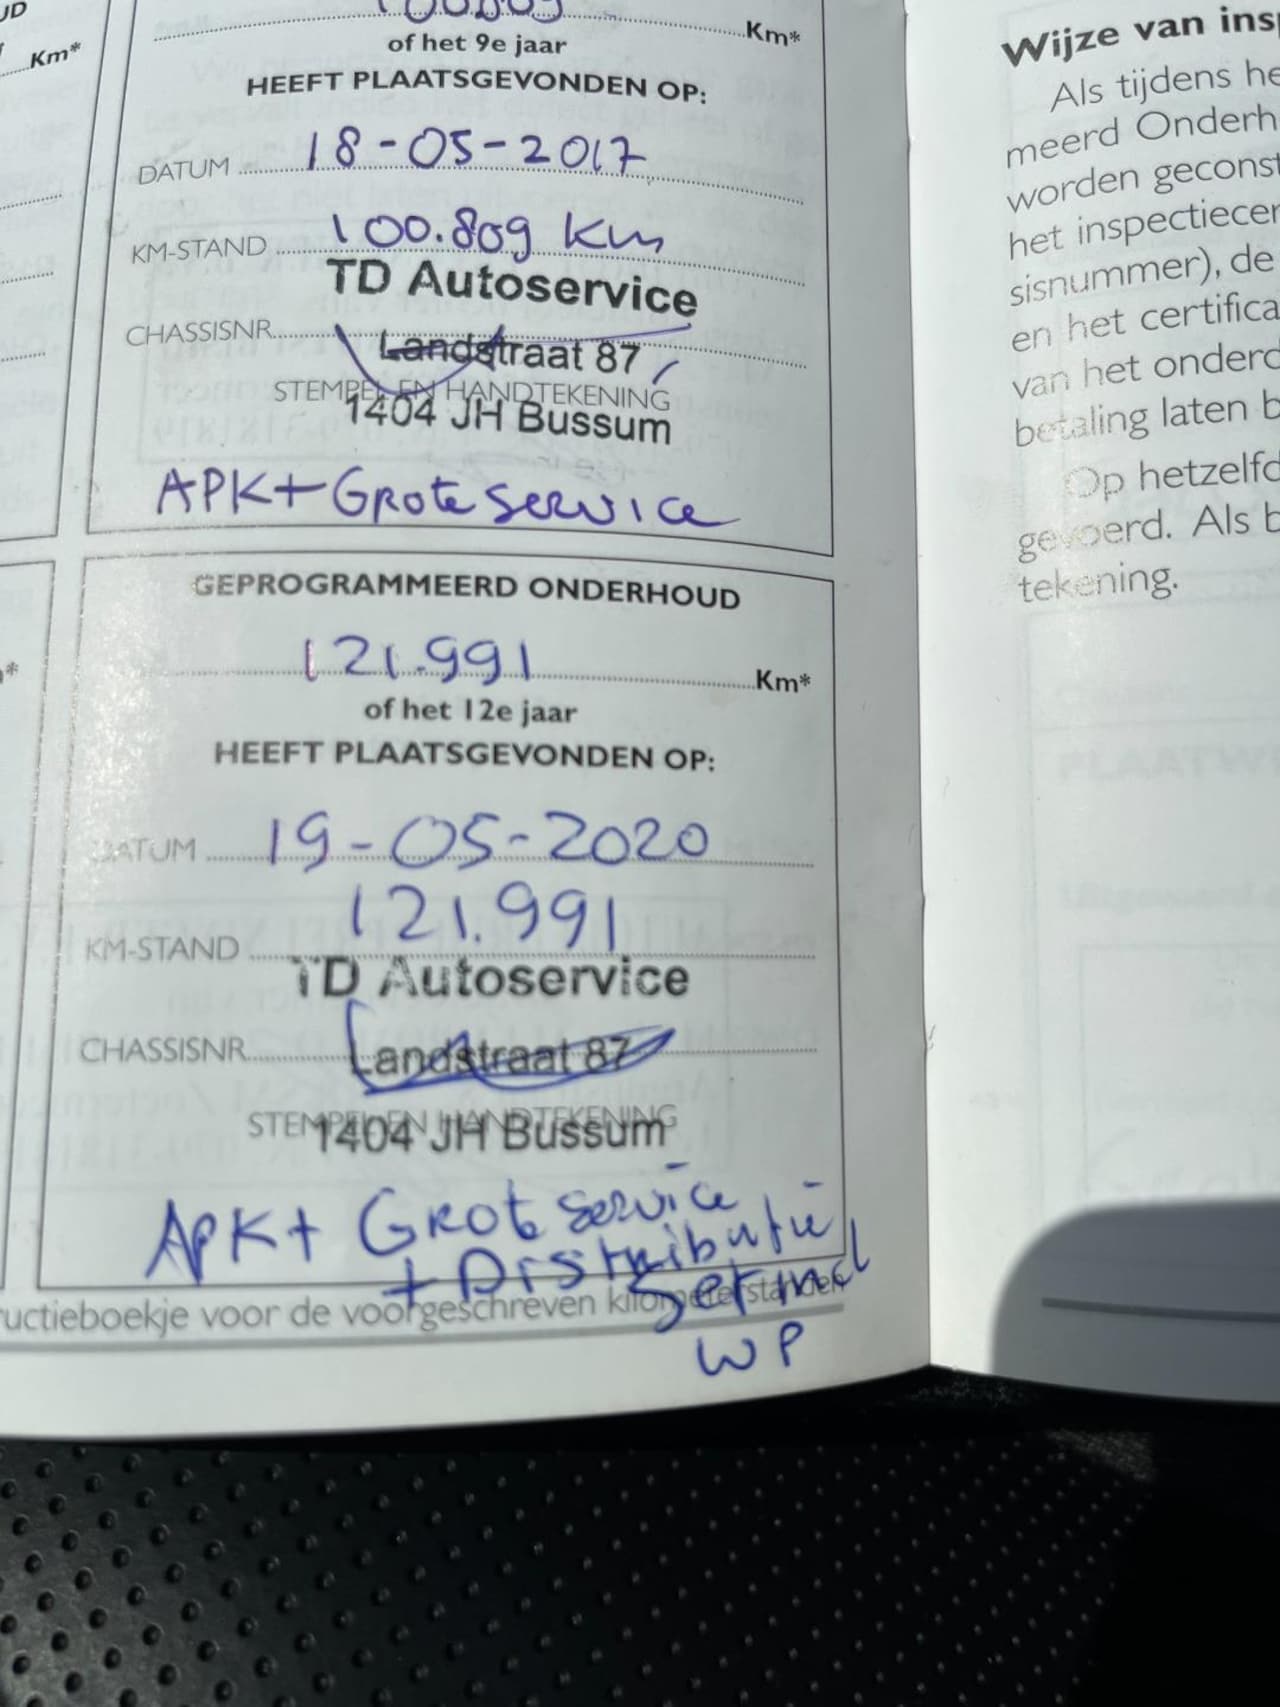 UD
Km*
100.809
Km*
of het 9e jaar
HEEFT PLAATSGEVONDEN OP:
DATUM 18-05-2017
KM-STAND 100.809 Km
TD Autoservice
CHASSISNR.
Landstraat 87
STEMPEL EN HANDTEKENING
1404 JH Bussum
APK + Grote service
GEPROGRAMMEERD ONDERHOUD
121.991
Km*
of het 12e jaar
HEEFT PLAATSGEVONDEN OP:
DATUM 19-05-2020
KM-STAND 121.991
TD Autoservice
CHASSISNR.
Landstraat 87
STEMPEL EN HANDTEKENING
1404 JH Bussum
APK + Grote service
+ Distributie
set incl
WP
uctieboekje voor de voorgeschreven kilometerstanden
Wijze van insp
Als tijdens he
meerd Onderh
worden geconst
het inspectiecer
sisnummer), de
en het certifica
van het onderd
betaling laten b
Op hetzelfd
gevoerd. Als b
tekening.